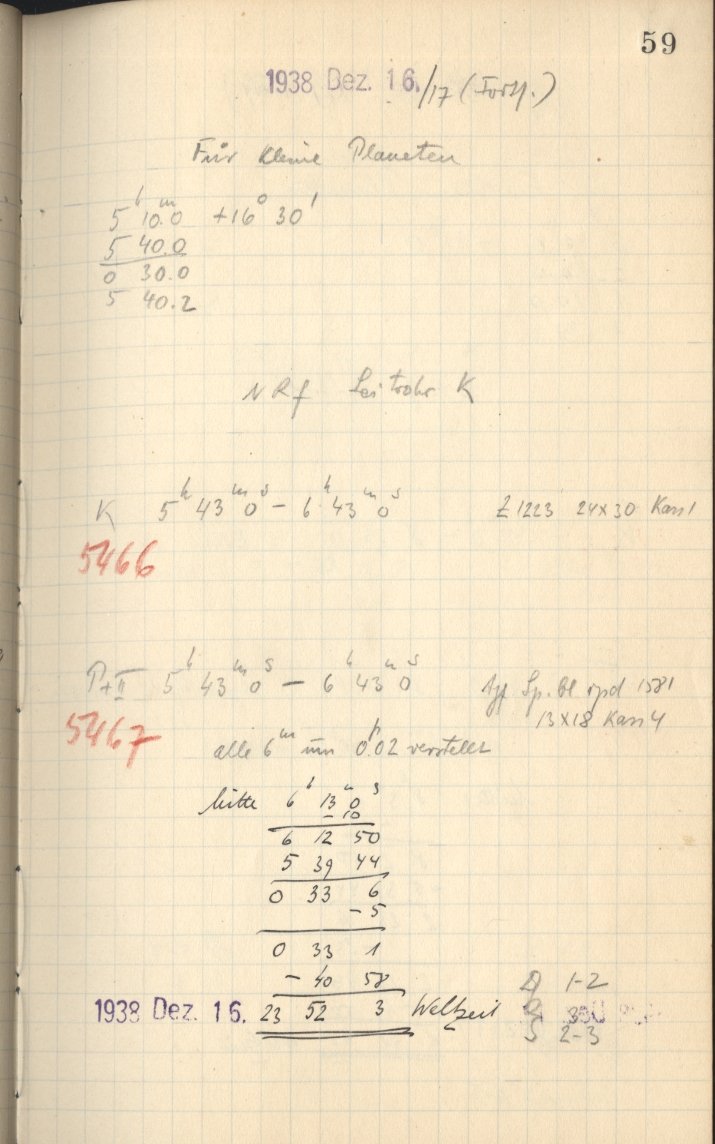 59
1938 Dez. 16./17 (Forts.)
Für kleine Planeten
5ʰ 10.0ᵐ +16° 30'
5 40.0
0 30.0
5 40.2
NRf Leitrohr K
K 5ʰ 43ᵐ 0ˢ – 6ʰ 43ᵐ 0ˢ Z 1223 24×30 Kass 1
5466
P+II 5ʰ 43ᵐ 0ˢ – 6ʰ 43ᵐ 0ˢ Sp. Bl 1581
13×18 Kass 4
5467
alle 6ᵐ um 0.02 verstellt
Mitte 6ʰ 13ᵐ 0ˢ
– 10
6 12 50
5 39 44
0 33 6
– 5
0 33 1
– 40 58
1938 Dez. 16. 23 52 3 Weltzeit
1-2
3
S 2-3